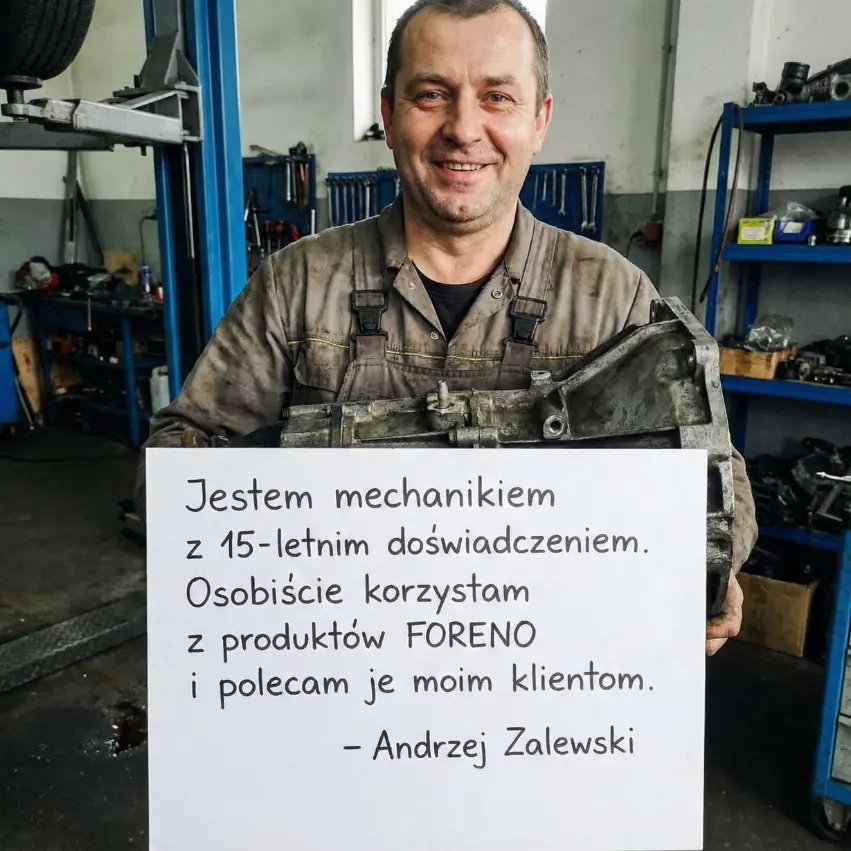 Jestem mechanikiem
z 15-letnim doświadczeniem.
Osobiście korzystam
z produktów FORENO
i polecam je moim klientom.
– Andrzej Zalewski